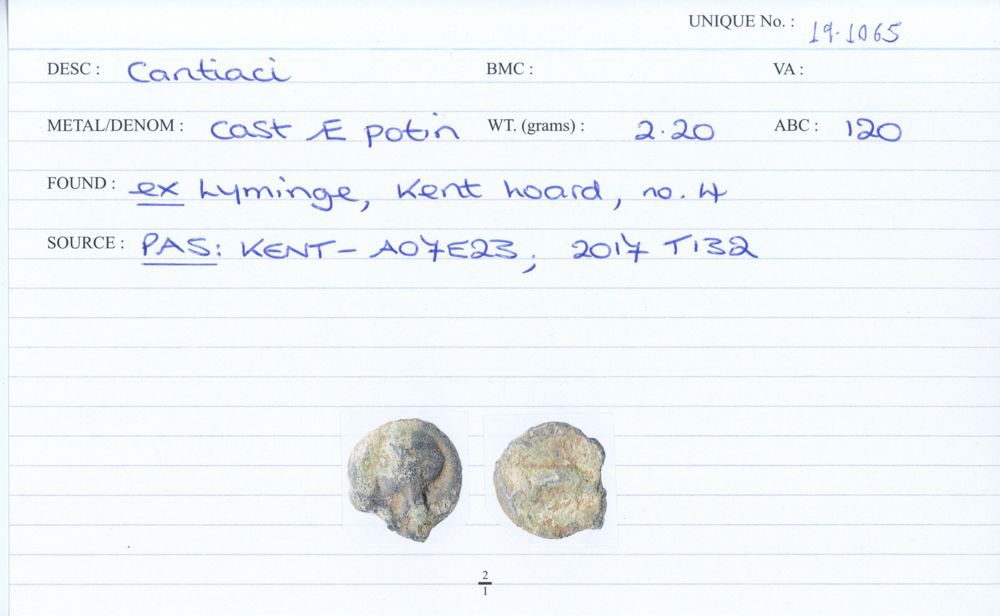 UNIQUE No. : 19.1065
DESC : Cantiaci BMC : VA :
METAL/DENOM : Cast Æ potin WT. (grams) : 2.20 ABC : 120
FOUND : ex Lyminge, Kent hoard, no. 4
SOURCE : PAS: KENT-A07E23; 2017 T132
2
1